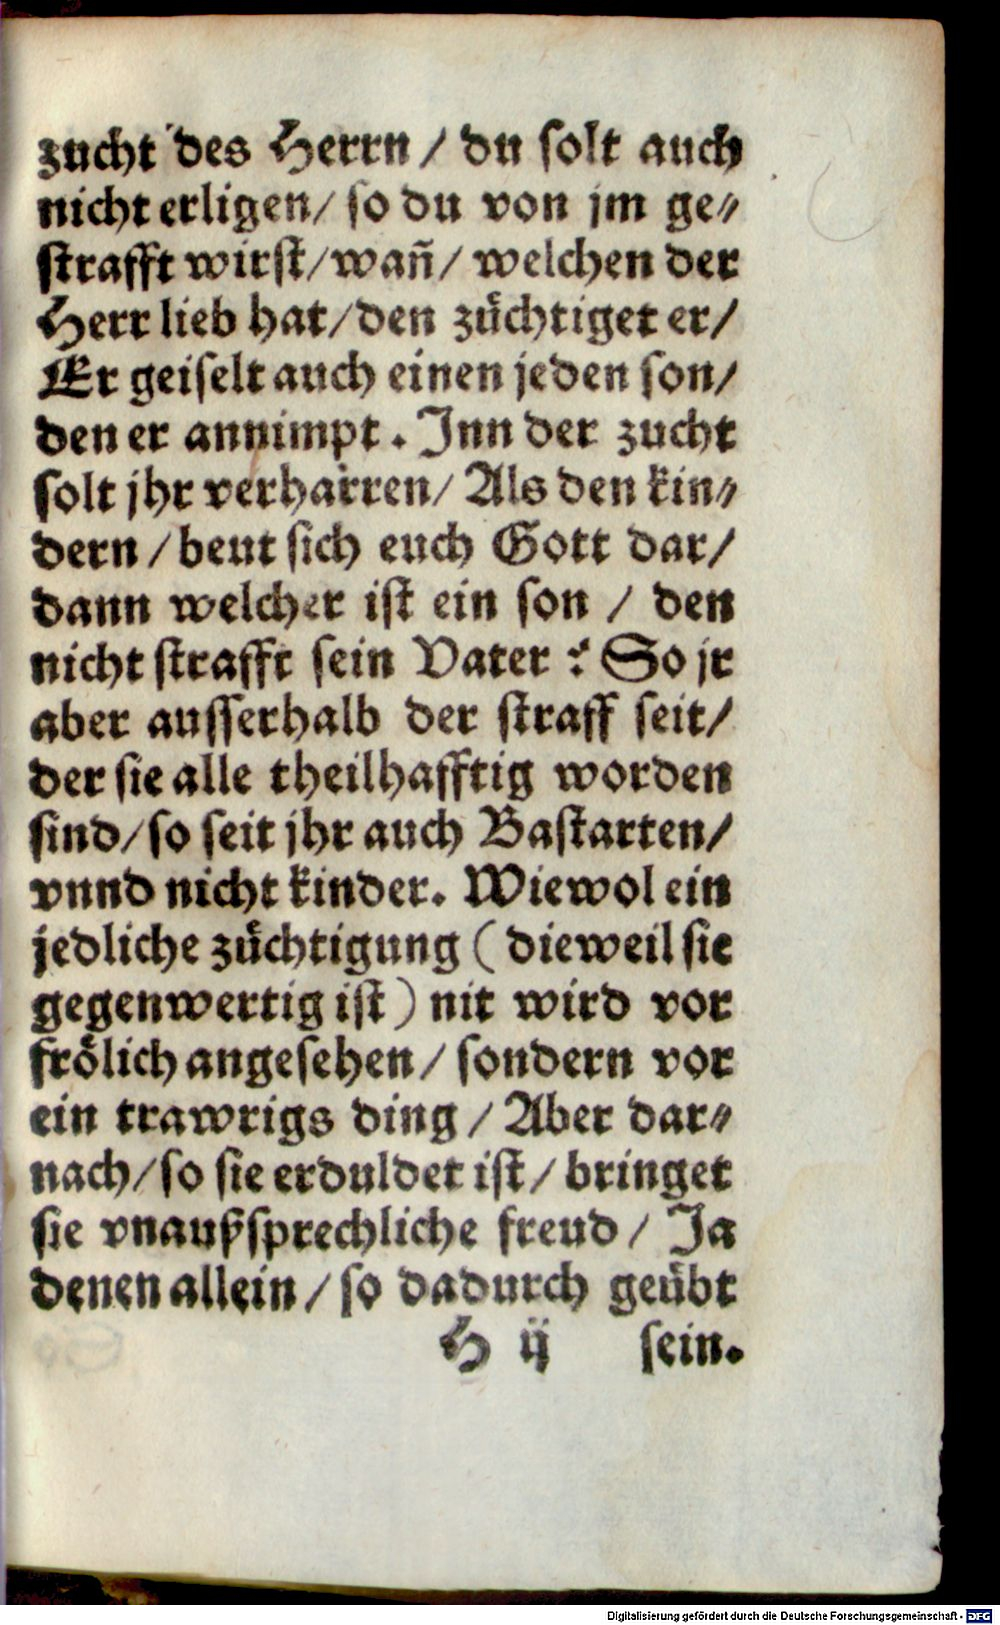 zucht des Herrn / du solt auch
nicht erligen / so du von jm ge⸗
strafft wirst / wañ / welchen der
Herr lieb hat / den züchtiget er /
Er geiselt auch einen jeden son /
den er annimpt. Inn der zucht
solt jhr verharren / Als den kin⸗
dern / beut sich euch Gott dar /
dann welcher ist ein son / den
nicht strafft sein Vater? So jr
aber ausserhalb der straff seit /
der sie alle theilhafftig worden
sind / so seit jhr auch Bastarten /
vnnd nicht kinder. Wiewol ein
jedliche züchtigung (dieweil sie
gegenwertig ist) nit wird vor
frölich angesehen / sondern vor
ein trawrigs ding / Aber dar⸗
nach / so sie erduldet ist / bringet
sie vnaußsprechliche freud / Ja
denen allein / so dadurch geübt
H ij sein.
Digitalisierung gefördert durch die Deutsche Forschungsgemeinschaft - DFG